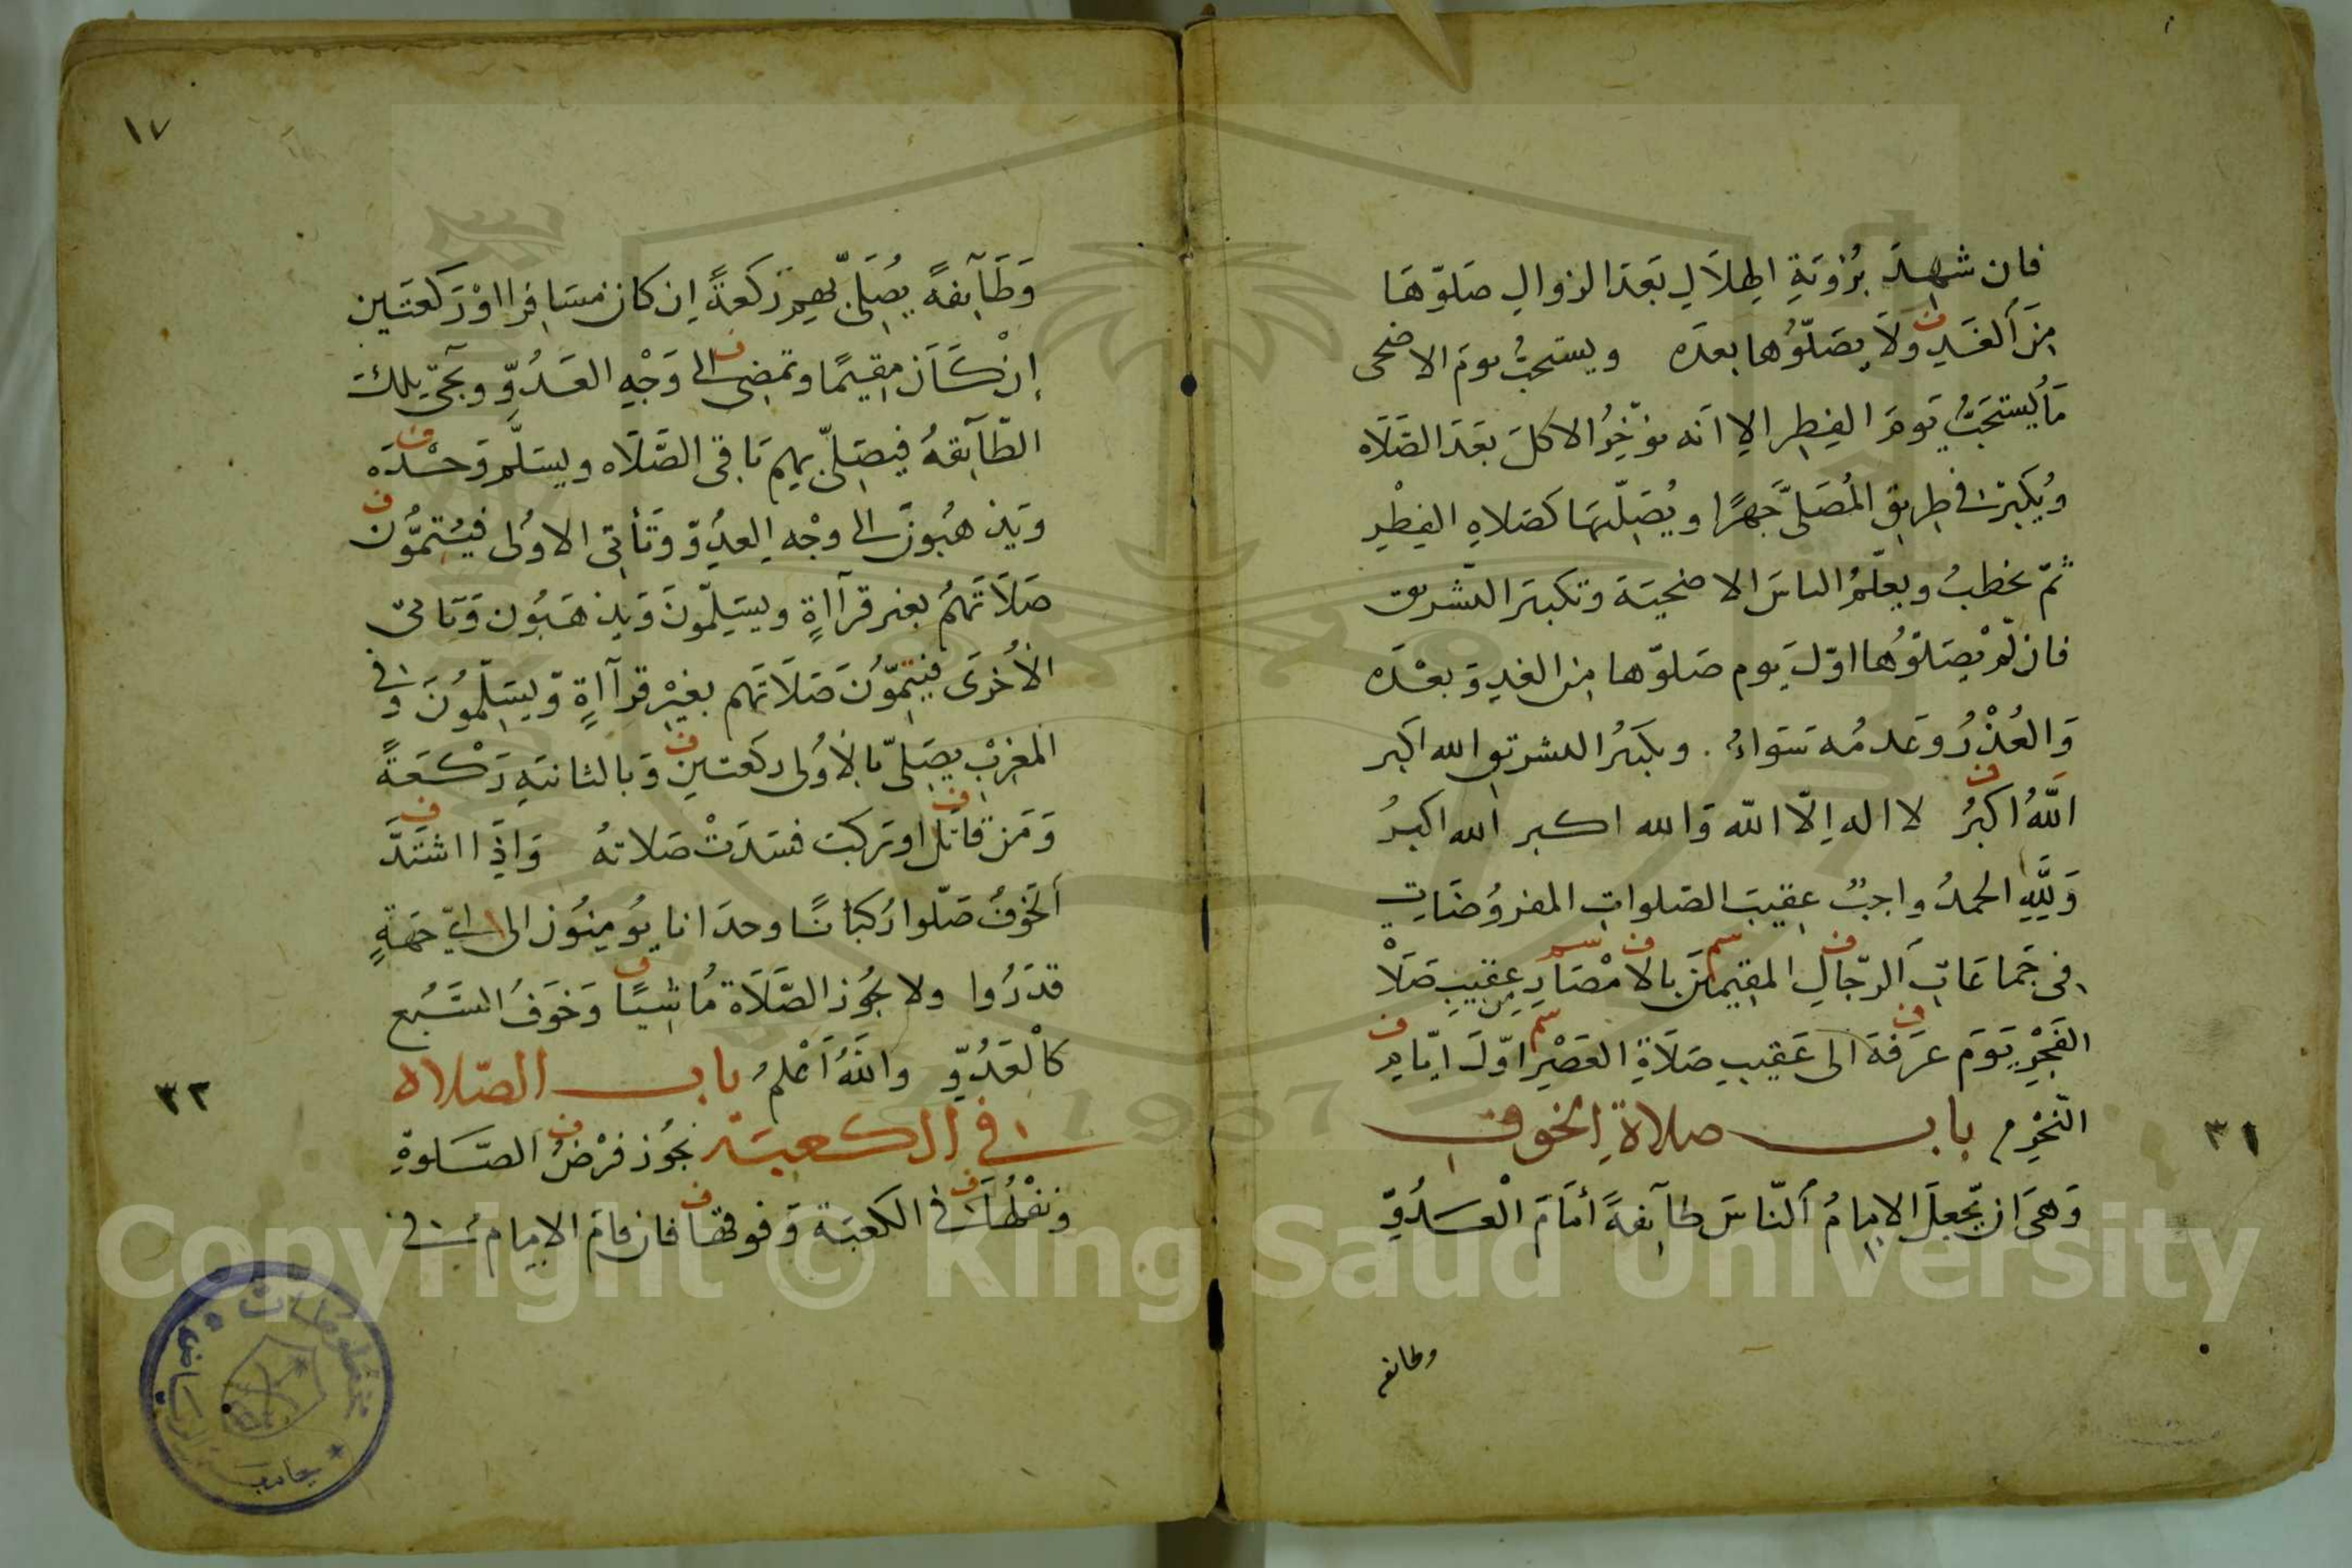 فان شهد برؤية الهلال بعد الزوال صلوها
من الغد ولا يصلوها بعده ويستحب يوم الاضحى
ما يستحب يوم الفطر الا انه يؤخر الاكل بعد الصلاه
ويكبر في طريق المصلى جهرا ويصليها كصلاه الفطر
ثم يخطب ويعلم الناس الاضحية وتكبير التشريق
فان لم يصلوها اول يوم صلوها من الغد وبعده
والعذر وعدمه سواء . وتكبير التشريق الله اكبر
الله اكبر لا اله الا الله والله اكبر الله اكبر
ولله الحمد واجب عقيب الصلوات المفروضات
في جماعات الرجال المقيمين بالامصار من عقيب صلاة
الفجر يوم عرفة الى عقيب صلاة العصر اول ايام
النحر باب صلاة الخوف
٣١
وهي ان يجعل الامام الناس طآيفة أمام العدو
وطايفه
١٧
وطآيفة يصلى بهم ركعة ان كان مسافرا او ركعتين
إن كان مقيما وتمضى الى وجه العدو وتجئ تلك
الطآيفة فيصلى بهم باقى الصلاه ويسلم وحده
ويذهبون الى وجه العدو وتأتى الاولى فيتمون
صلاتهم بغير قراءة ويسلمون ويذهبون وتاتى
الأخرى فيتمون صلاتهم بغير قراءة ويسلمون وفي
المغرب يصلى بالأولى ركعتين وبالثانيه ركعة
ومن قاتل او ركب فسدت صلاته واذا اشتد
الخوف صلوا ركبانا وحدانا يومئون الى اي جهة
قدروا ولا تجوز الصلاة ماشيا وخوف السبع
كالعدو والله أعلم باب الصلاه
٣٢
في الكعبة تجوز فرض الصلوة
ونفلها في الكعبة وفوقها فان قام الامام في
Copyright © King Saud University
1957